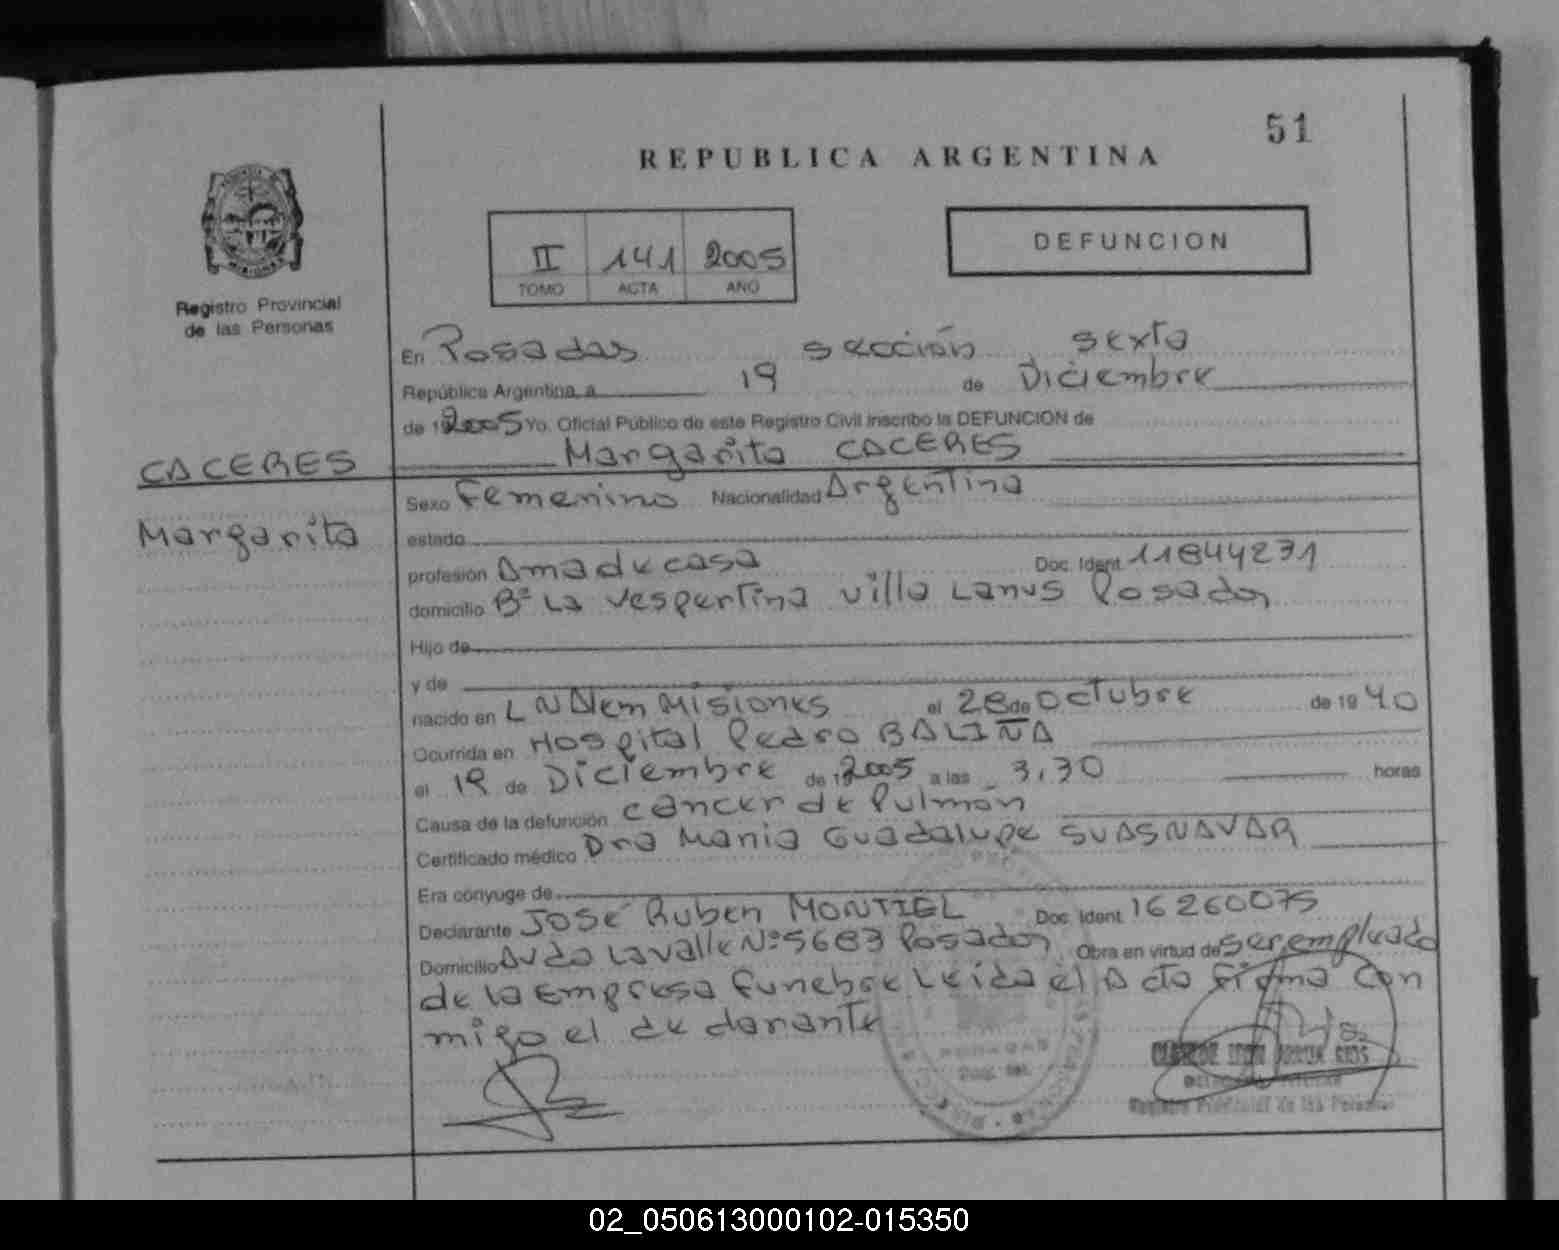 51
REPUBLICA ARGENTINA
II 141 2005
TOMO ACTA AÑO
DEFUNCION
Registro Provincial
de las Personas
En Posadas sección sexta
República Argentina, a 19 de Diciembre
de 2005 Yo, Oficial Público de este Registro Civil inscribo la DEFUNCION de
Margarita CACERES
CACERES
Margarita
Sexo Femenino Nacionalidad Argentina
estado
profesión Ama de casa Doc. Ident. 11844271
domicilio Bº La Vespertina Villa Lanus Posadas
Hijo de
y de
nacido en L N Alem Misiones el 28 de Octubre de 19 40
Ocurrida en Hospital Pedro BALIÑA
el 19 de Diciembre de 2005 a las 3,30 horas
Causa de la defunción cancer de Pulmón
Certificado médico Dra Maria Guadalupe SUASNAVAR
Era cónyuge de
Declarante José Ruben MONTIEL Doc. Ident. 16260075
Domicilio Avda Lavalle Nº 5683 Posadas Obra en virtud de ser empleado
de la Empresa Funebre Leida el Acta Firma Con
migo el declarante
POSADAS
Registro Provincial de las Personas
02_050613000102-015350